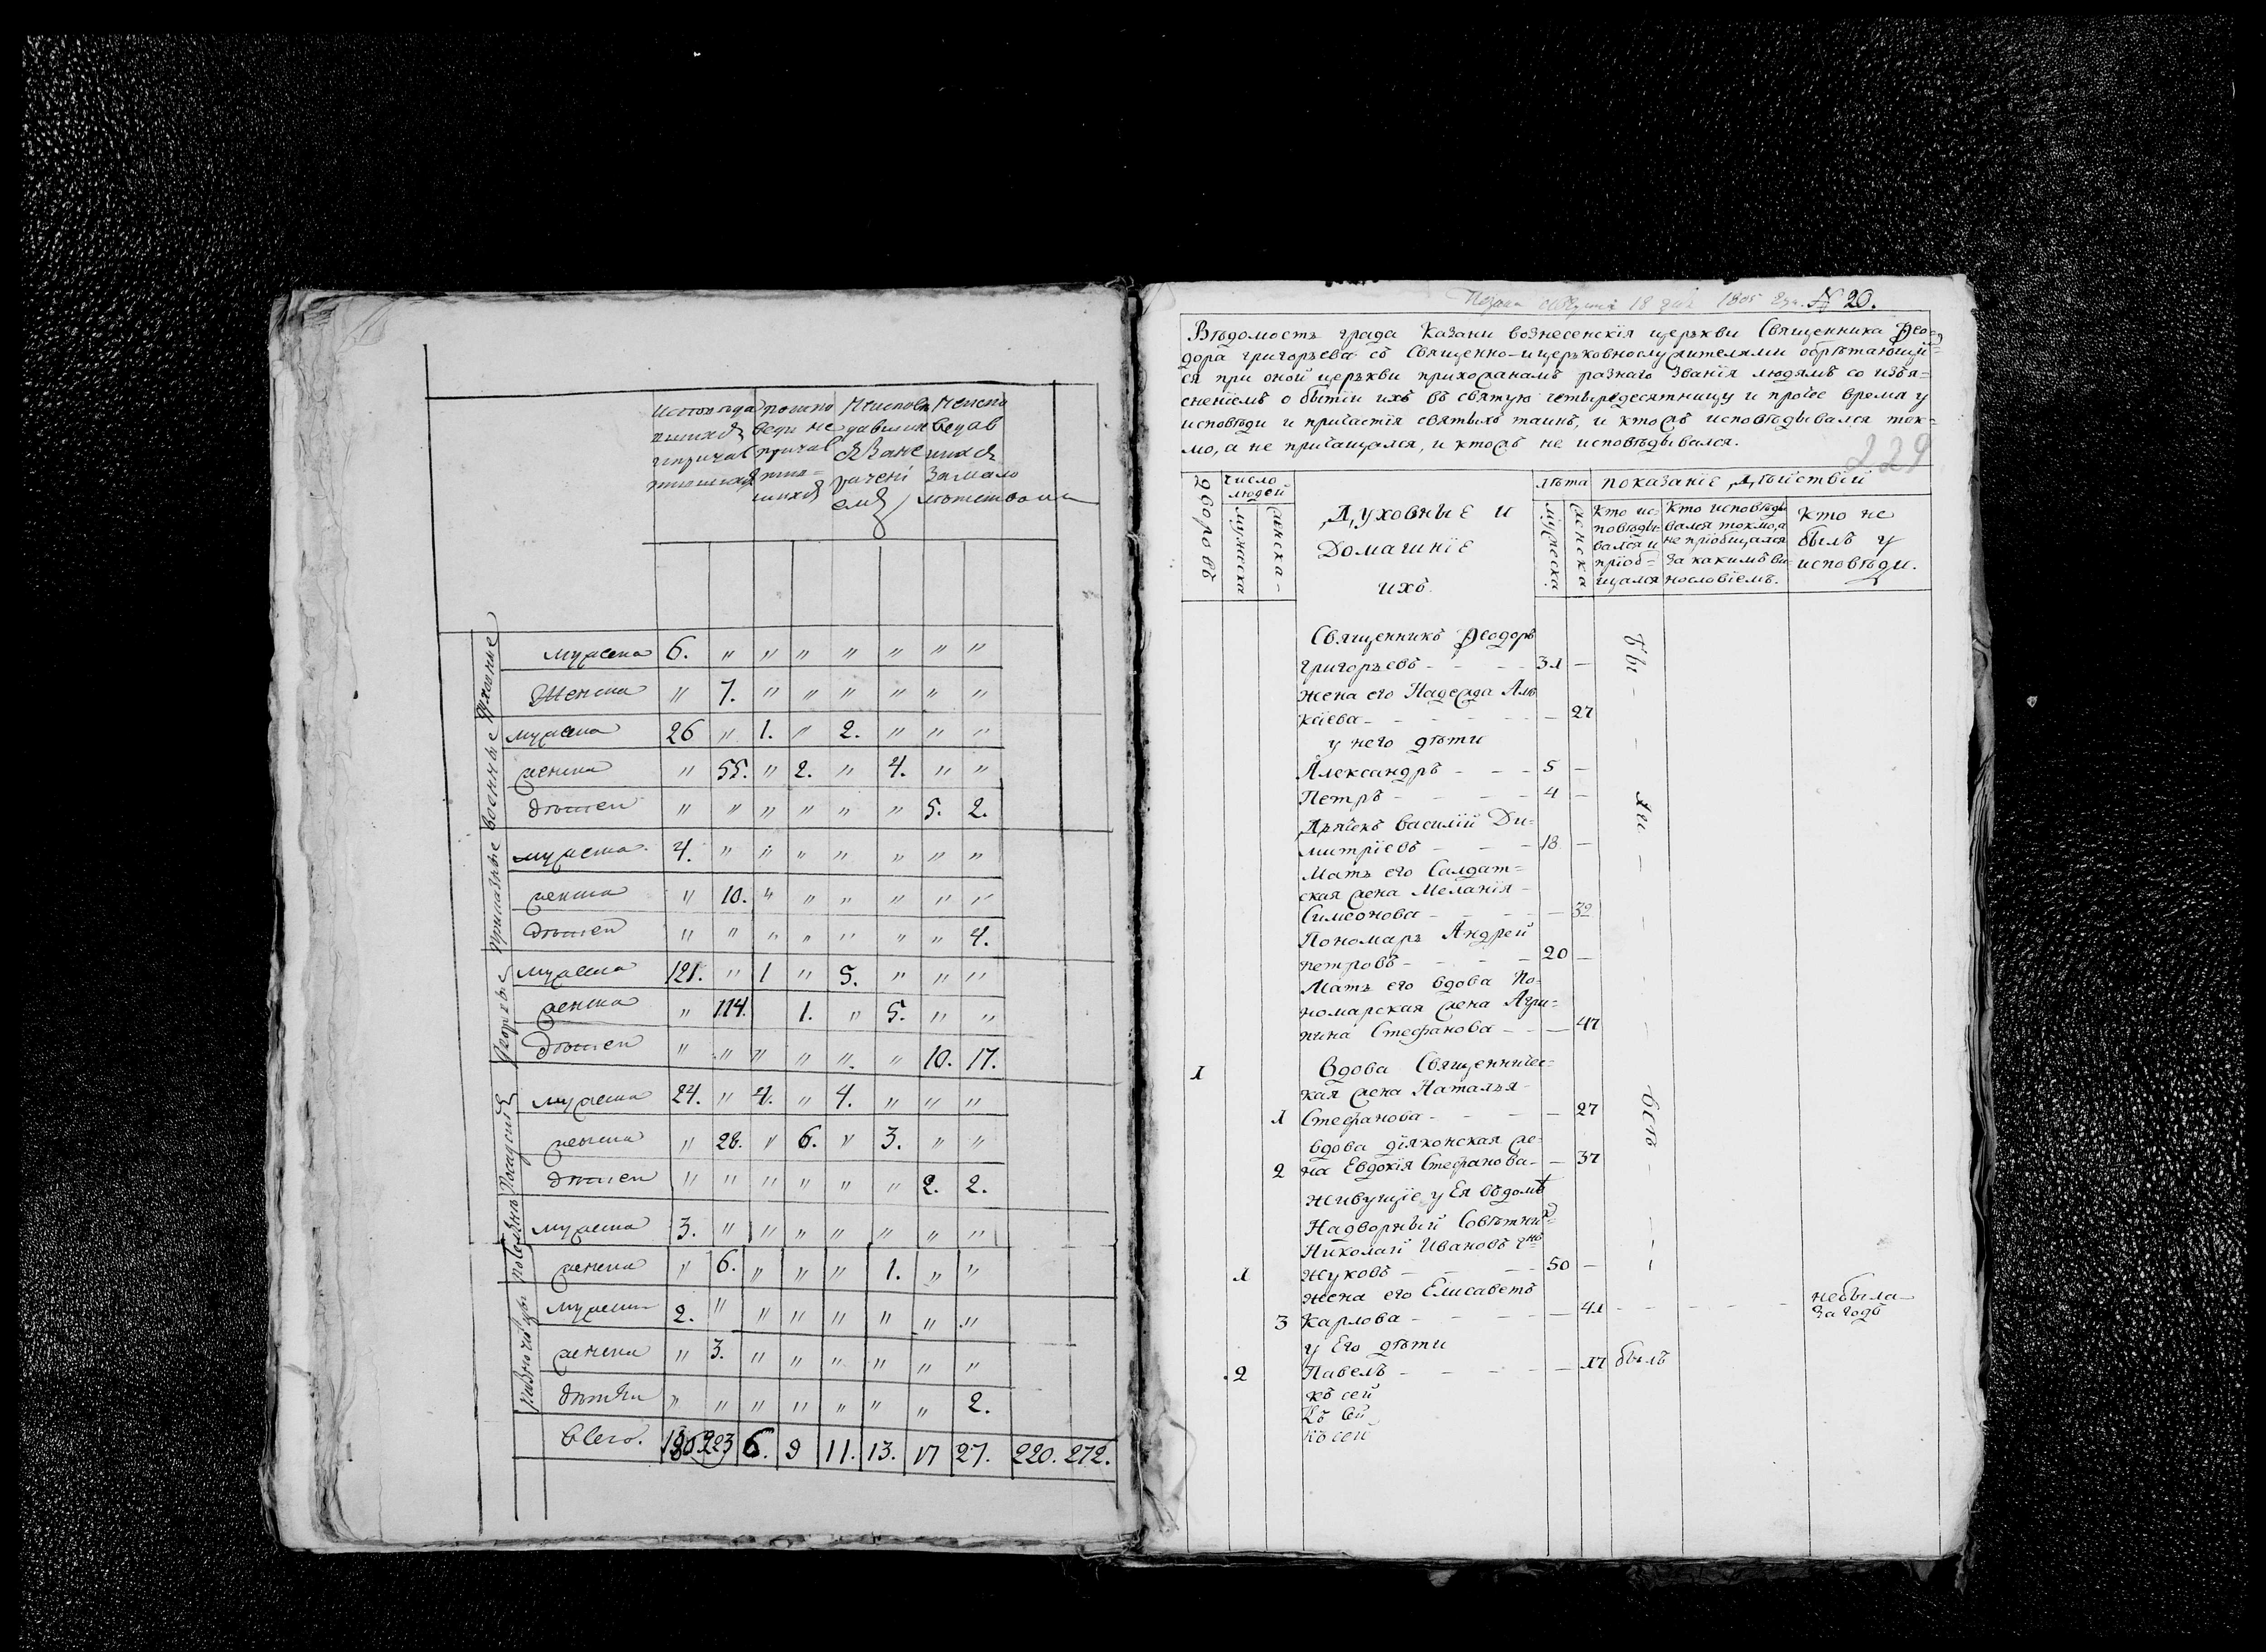 исповѣда поиспо Неиспов Неиспо
вшихся веди не давших ведав
ипричас причас ся зане шихся
тившихся тив= рачені за мало
шихся емъ лѣтством
Духовные
мужеска 6. " " " " " " "
Женска " 7. " " " " " "
военные
мужеска 26 " 1. " 2. " " "
женска " 55. " 2. " 4. " "
дѣтей " " " " " " 5. 2.
приказные
мужеска 4. " " " " " " "
женска " 10. " " " " " "
дѣтей " " " " " " " 4.
мужеска 121. " 1 " 5. " " "
женска " 114. 1. " 5. " "
дѣтей " " " " " " 10. 17.
мужеска 24. " 4. " 4. " " "
женска " 28. " 6. " 3. " "
дѣтей " " " " " " 2. 2.
мужеска 3. " " " " " " "
женска " 6. " " " 1. " "
мужеска 2. " " " " " " "
женска " 3. " " " " " "
дѣтей " " " " " " " 2.
Всего. 186 223 6. 9 11. 13. 17 27. 220. 272.
18 1805 № 20.
Вѣдомость града Казани вознесенскія церькви Священника Ѳео=
дора григорьева со Священно-и церьковнослужителями обрѣтающим=
ся при оной церькви прихожанамъ разнаго званія людямъ со изъя=
сненіемъ о бытіи ихъ въ святую четыредесятницу и протчее время у
исповѣди и причастія святыхъ таинъ, и ктожъ исповѣдывался ток=
мо, а не причащался, и ктожъ не исповѣдывался.
229
дворовъ
число людей
мужеска
женска-
Духовные и
Домашніе
ихъ.
лѣта
мужеска
женска
показаніе дѣйствій
Кто ис=
повѣды=
вался и
пріоб=
щался
Кто исповѣды
вался токмо, а
не пріобщался
За какимъ ви
нословіемъ.
Кто не
былъ у
исповѣди.
Священникъ Ѳеодоръ
григорьевъ - - - - 31 —
жена его Надежда Але
кѣева - - - - — 27
у него дѣти
Александръ - - - 5 —
Петръ - - - - 4 —
Дьячекъ василій Ди=
митріевъ - - - 18 —
Мать его Салдат=
ская жена Меланія -
Симеонова - - - — 39
Пономарь Андрей
петровъ - - - - 20 —
Мать его вдова По=
номарская жена Агри=
пина Стефанова - - — 47
1 Вдова Священничес=
кая жена Наталья -
1 Стефанова - - - — 27
вдова діяконская же=
2 на Евдокія Стефанова - — 37
живущіе у Ея въ домѣ
Надворный Совѣтникъ
Николай Ивановъ сынъ
1 жуковъ - - - - 50 —
жена его Елисаветъ
3 Карлова - - - - — 41 - - - - небыла
за годъ
у Его дѣти
2 Павелъ - - - - — 17 былъ
къ сей
Къ сей
къ сей